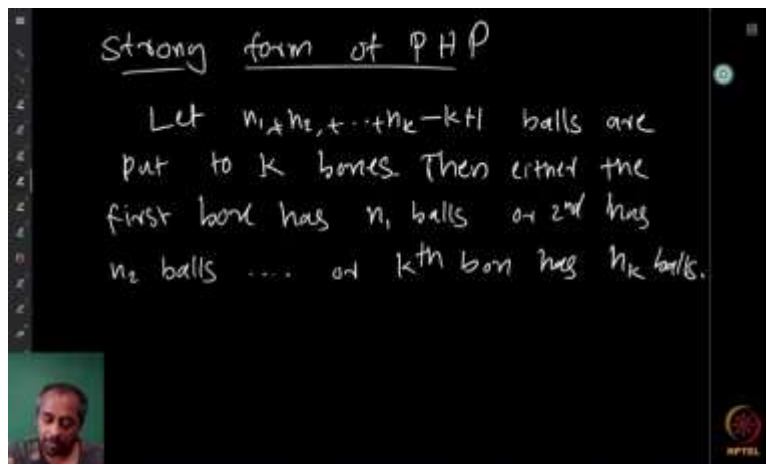 Strong form of PHP
Let n₁+n₂,+...+nₖ-k+1 balls are
put to k boxes. Then either the
first box has n₁ balls or 2nd has
n₂ balls .... or kth box has nₖ balls.
NPTEL